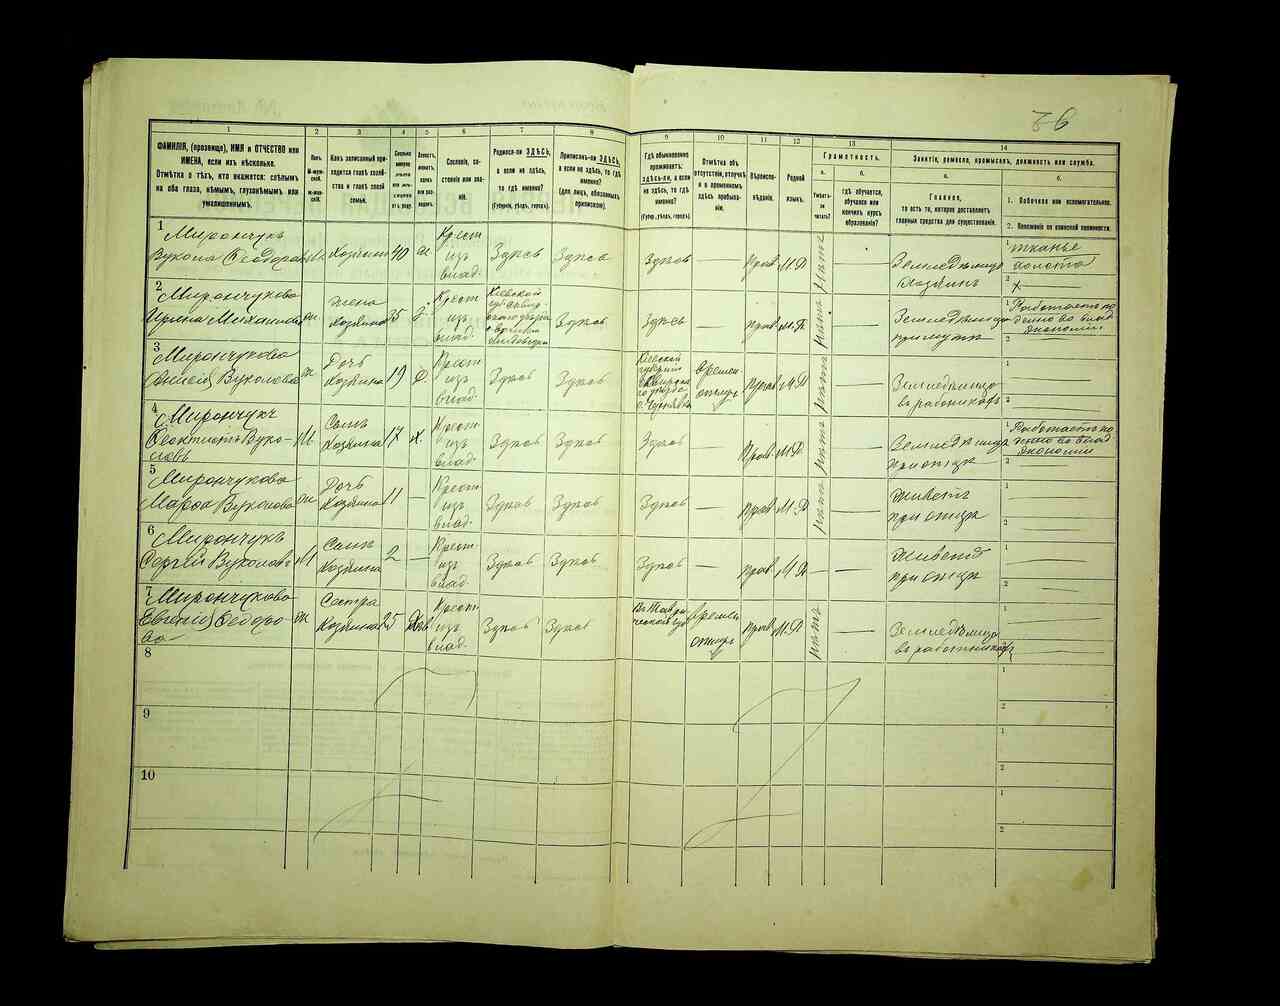 1 2 3 4 5 6 7 8 9 10 11 12 13 14
ФАМИЛІЯ, (прозвище), ИМЯ и ОТЧЕСТВО или ИМЕНА, если ихъ нѣсколько.
Отмѣтка о тѣхъ, кто окажется: слѣпымъ на оба глаза, нѣмымъ, глухонѣмымъ или умалишеннымъ.
Полъ.
Какъ записанный приходится главѣ хозяйства и главѣ своей семьи.
Сословіе, состояніе или званіе.
Родился-ли ЗДѢСЬ, а если не здѣсь, то гдѣ именно?
(Губернія, уѣздъ, городъ).
Приписанъ-ли ЗДѢСЬ, а если не здѣсь, то гдѣ именно?
(для лицъ, обязанныхъ припискою).
Гдѣ обыкновенно проживаетъ: здѣсь-ли, а если не здѣсь, то гдѣ именно?
(Губер., уѣздъ, городъ).
Отмѣтка объ отсутствіи, отлучкѣ и о временномъ здѣсь пребываніи.
Вѣроисповѣданіе.
Родной языкъ.
Грамотность.
а.
Умѣетъ-ли читать?
б.
гдѣ обучается, обучался или кончилъ курсъ образованія?
Занятіе, ремесло, промыселъ, должность или служба.
а.
Главное,
то есть то, которое доставляетъ главныя средства для существованія.
б.
1. Побочное или вспомогательное.
2. Положеніе по воинской повинности.
1 Мирончукъ Вукола Ѳеодоровъ М Хозяинъ 40 ж Крест. изъ влад. Здѣсь Здѣсь Здѣсь — Прав. М.Р. нѣтъ — Земледѣлецъ хозяинъ 1 тканье холста 2 х
2 Мирончукова Ирина ж жена хозяина 35 Крест. изъ влад. Кіевской Здѣсь Здѣсь — Прав. М.Р. нѣтъ — Земледѣлецъ при мужѣ 1 Работаетъ по денно во влад экономіи 2
3 Мирончукова Вуколова ж Дочь хозяина 19 Крест. изъ влад. Здѣсь Здѣсь Кіевской губерніи Времен. Прав. М.Р. нѣтъ — Земледѣлецъ въ работникахъ 1 — 2 —
4 Мирончукъ Ѳеоктистъ Вуколовъ М Сынъ хозяина 17 х. Крест. изъ влад. Здѣсь Здѣсь Здѣсь — Прав. М.Р. нѣтъ — Земледѣлецъ при отцѣ 1 Работаетъ по денно во влад экономіи 2 —
5 Мирончукова Марѳа Вуколова ж Дочь хозяина 11 — Крест. изъ влад. Здѣсь Здѣсь Здѣсь — Прав. М.Р. нѣтъ — Живетъ при отцѣ 1 — 2 —
6 Мирончукъ Сергѣй Вуколовъ М Сынъ хозяина 2 — Крест. изъ влад. Здѣсь Здѣсь Здѣсь — Прав. М.Р. — — Живетъ при отцѣ 1 — 2 —
7 Мирончукова Евгенія Ѳеодорова ж Сестра хозяина 25 Крест. изъ влад. Здѣсь Здѣсь Времен. Прав. М.Р. нѣтъ — Земледѣлецъ въ работникахъ
8 1 2
9 1 2
10 1 2